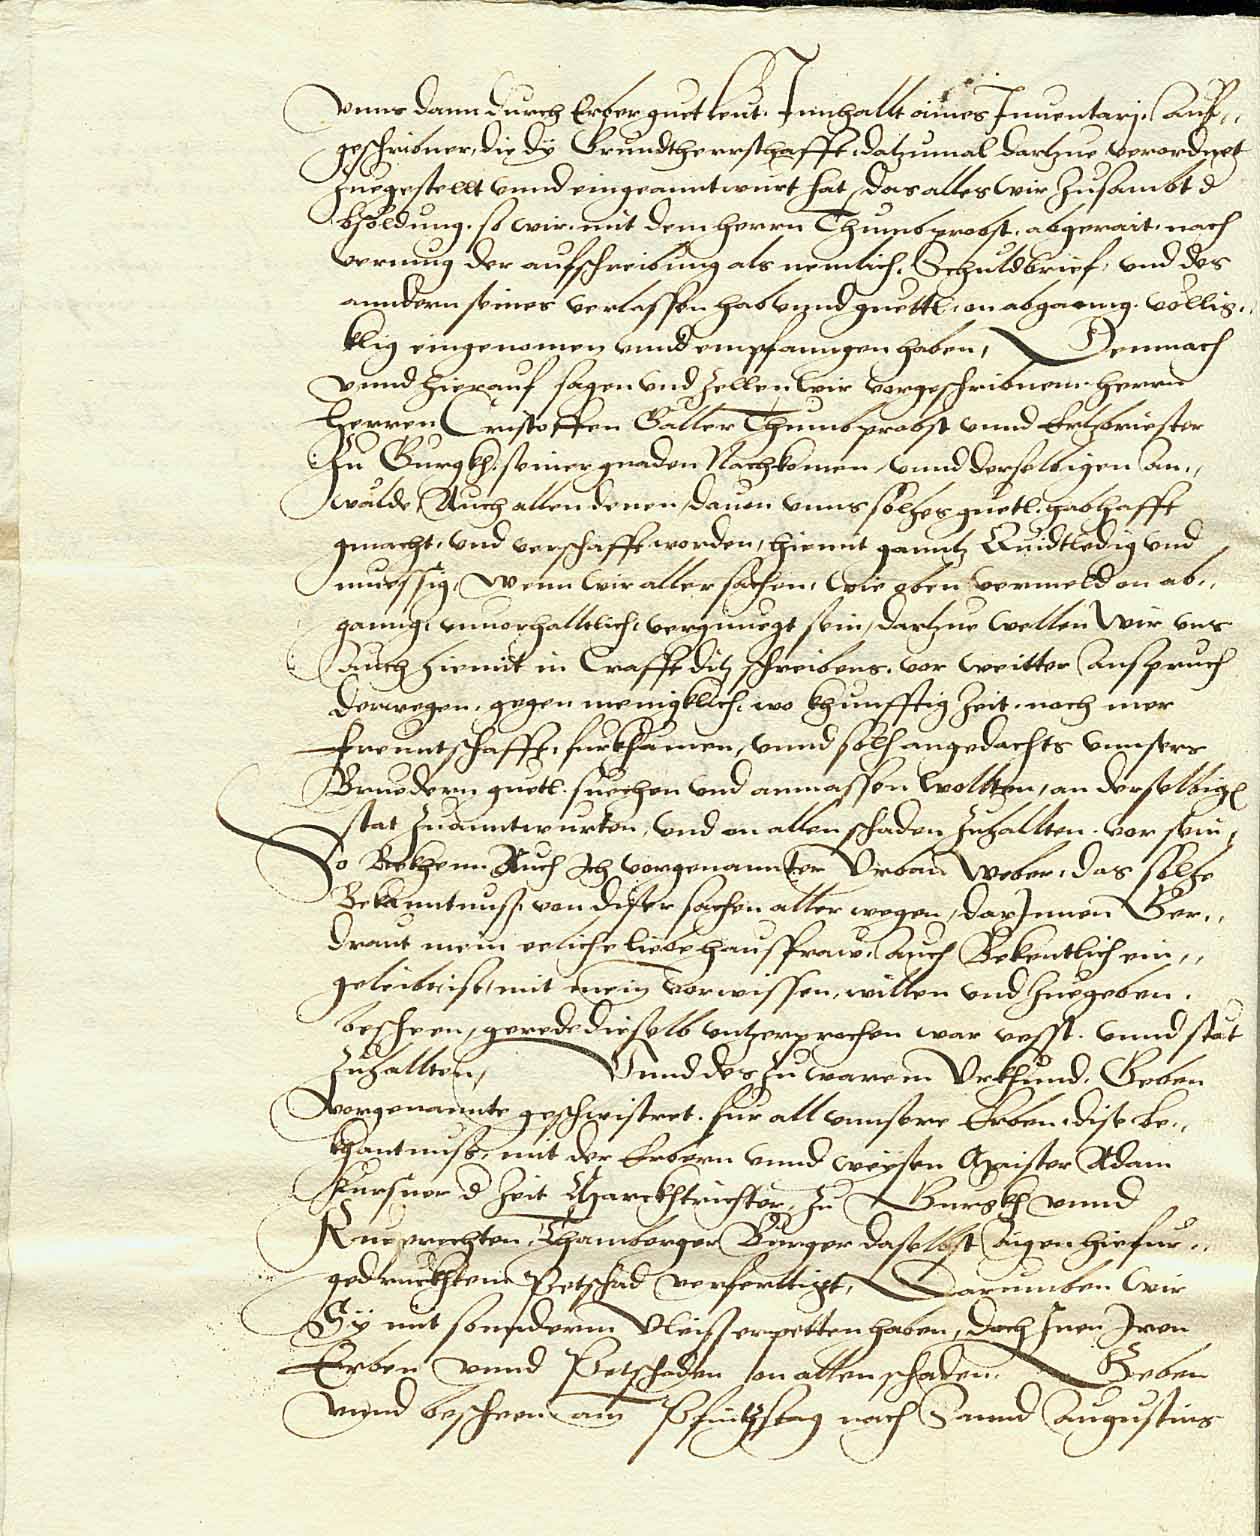 vnns dann durch Erber guet leut. Innhallt aines Inuentarj. Auf„
geschribner, die dÿ Grundtherrschafft, datzumal dartzue verordnet
zuegestellt vnnd eingeanntwurt hat, das alles wir zusambt d
bsoldung. so wir mit dem herrn Thumbprobst. abgerait. nach
vermug der aufschreibung als nemlich. Schuldbrief, vnd des
anndern seines verlassen hab vnnd guettl. on abganng. vollig„
klig eingenomen vnnd empfanngen haben, Demnach
vnnd hierauf sagen vnd zellen wir vorgeschribnem herrn
herren Cristoffen Galler Thumbprobst vnnd Ertzbriester
zu Gurgkh. seiner gnaden Nachkomen, vnnd derselbigen an„
wälde, Auch allen denen, dauon vnns solhes guetl. habhafft
gmacht, vnd verschafft worden, hiemit ganntz Quidt ledig vnd
muessig, Wenn wir aller sachen, wie oben vermeld on ab„
ganng, vnuorhalltlich, vergnuegt sein, dartzue wellen wir vns
auch hiemit in Crafft ditz schreibens. vor weitter Anspruch
derwegen, gegen menigklich, wo khunfftig Zeit. noch mer
freuntschafft, furkhämen, vnnd solh angedachts vnnsers
Bruedern guetl. suechen vnd anmassen wollten, an derselbigen
stat zuanntwurten, vnd on allen schaden zuhallten. vor sein,
So Bekhenn Auch Ich vorgenannter Vrban Weber, das solhe
Bekanntnuss. von diser sachen aller wegen, darjnnen Ger„
draut mein eeliche liebe hausfraw. auch Bekentlich ein„
geleibt ist, mit mein vorwissen, willen vnd zuegeben.
bescheen, gerede dieselb vntzerprochen war vesst. vnnd stät
zuhallten, Vnnd des zu warem Vrkhund. Geben
vorgenannte geschwistret. fur all vnnsere Erben, dise be„
khantnuss, mit der Erbern vnnd weÿsen Maister Adam
Kursner d Zeit Marckhtrichter, zu Gurgkh vnnd
Rueprechten Thamberger Burger daselbst aigen hiefur„
gedruckhtem Petschad verferttigt, Darumben wir
Sÿ mit sonnderm Vleiss erpetten haben, doch Inen Iren
Erben vnnd Petschaden on allen schaden. Geben
vnnd bescheen am Pfintztag nach Sannd Augustins